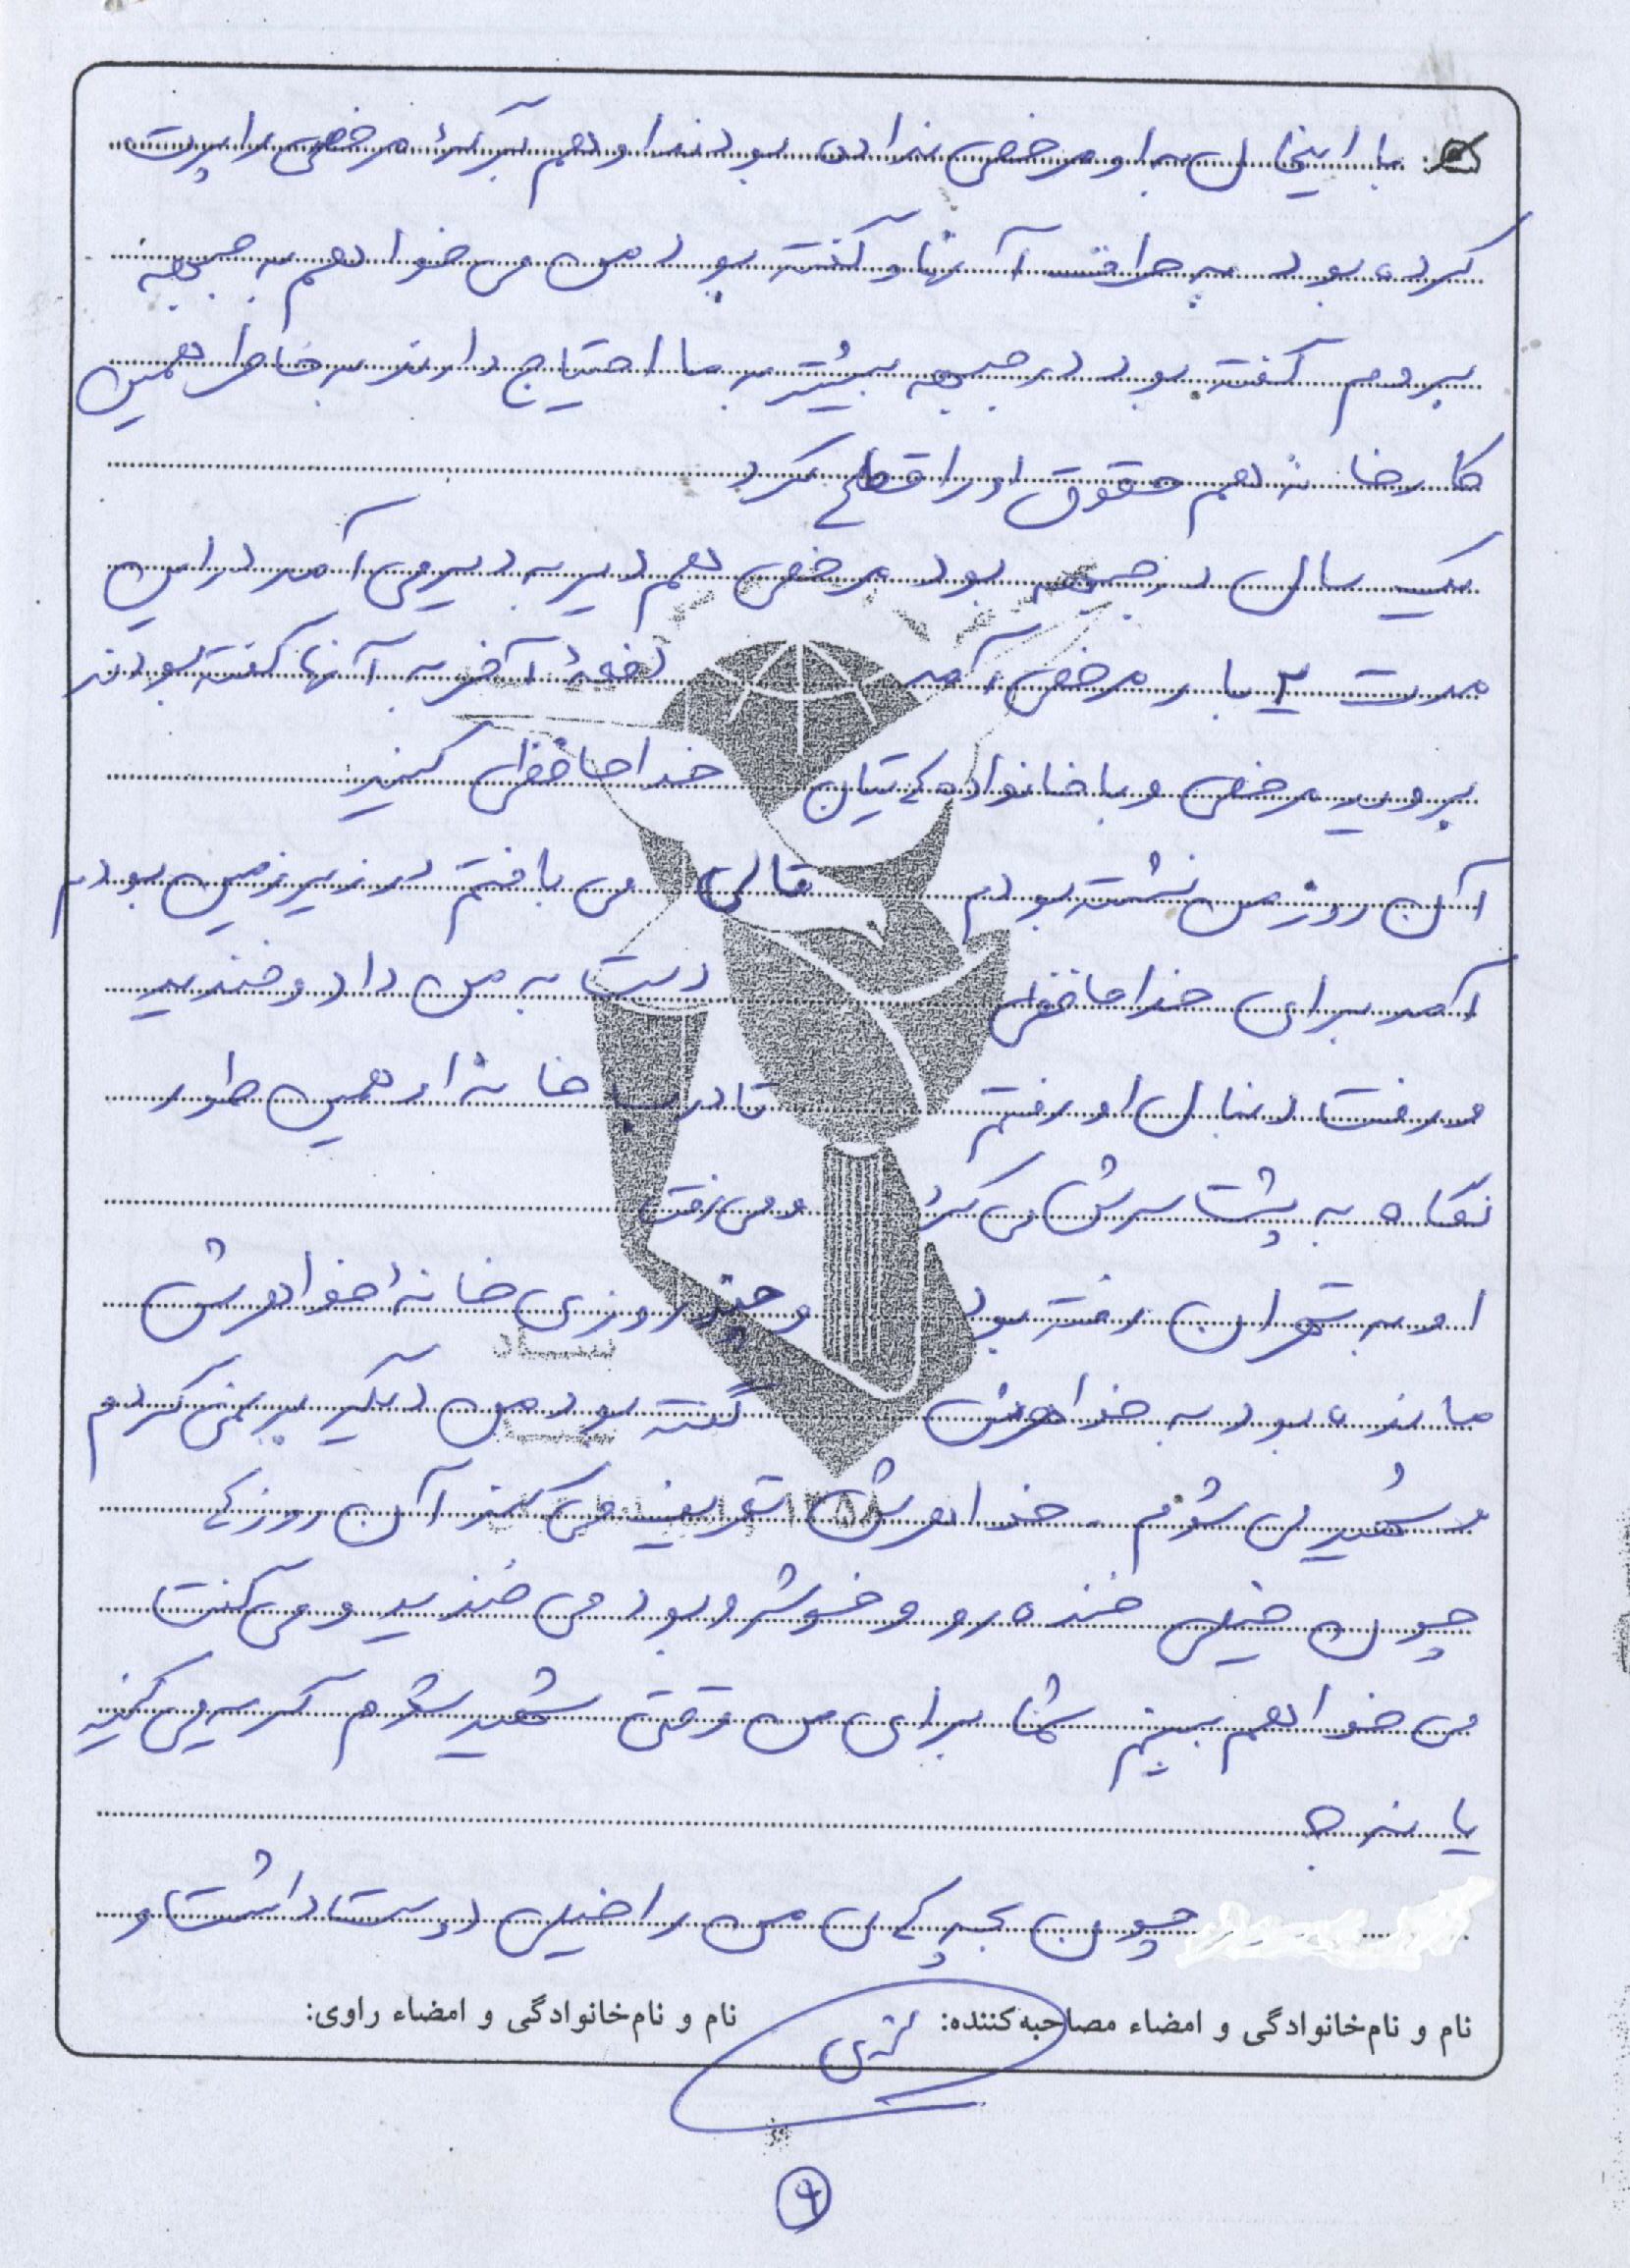 با اینحال به او مرخصی نداده بودند او هم برگهٔ مرخصی را پرت
کرده بود به طرف آنها و گفته بود من می خواهم به جبهه
بروم گفته بود در جبهه بیشتر به ما احتیاج دارند به خاطر همین
کارخانه هم حقوق او را قطع کرد
یک سال در جبهه بود مرخصی هم دیر به دیر می آمد در این
مدت ۲ بار مرخصی آمد دفعهٔ آخر به آنها گفته بودند
بروید مرخصی و با خانواده هایتان خداحافظی کنید
آن روز من نشسته بودم قالی می بافتم در زیرزمین بودم
آمد برای خداحافظی دست به من داد و خندید
و رفت دنبال او رفتم تا درب خانه او همین طور
نگاه به پشت سرش می کرد و می رفت
او به تهران رفته بود و چند روزی خانهٔ خواهرش
مانده بود به خواهرش گفته بود من دیگر بر نمی گردم
و شهید می شوم . خواهرش تعریف می کند آن روز
چون خیلی خنده رو و خوشرو بود می خندید و می گفت
می خواهم ببینم شما برای من وقتی شهید شدم گریه می کنید
یا نه؟
چون بچه های من را خیلی دوست داشت و
نام و نام‌خانوادگی و امضاء مصاحبه‌کننده: نام و نام‌خانوادگی و امضاء راوی: